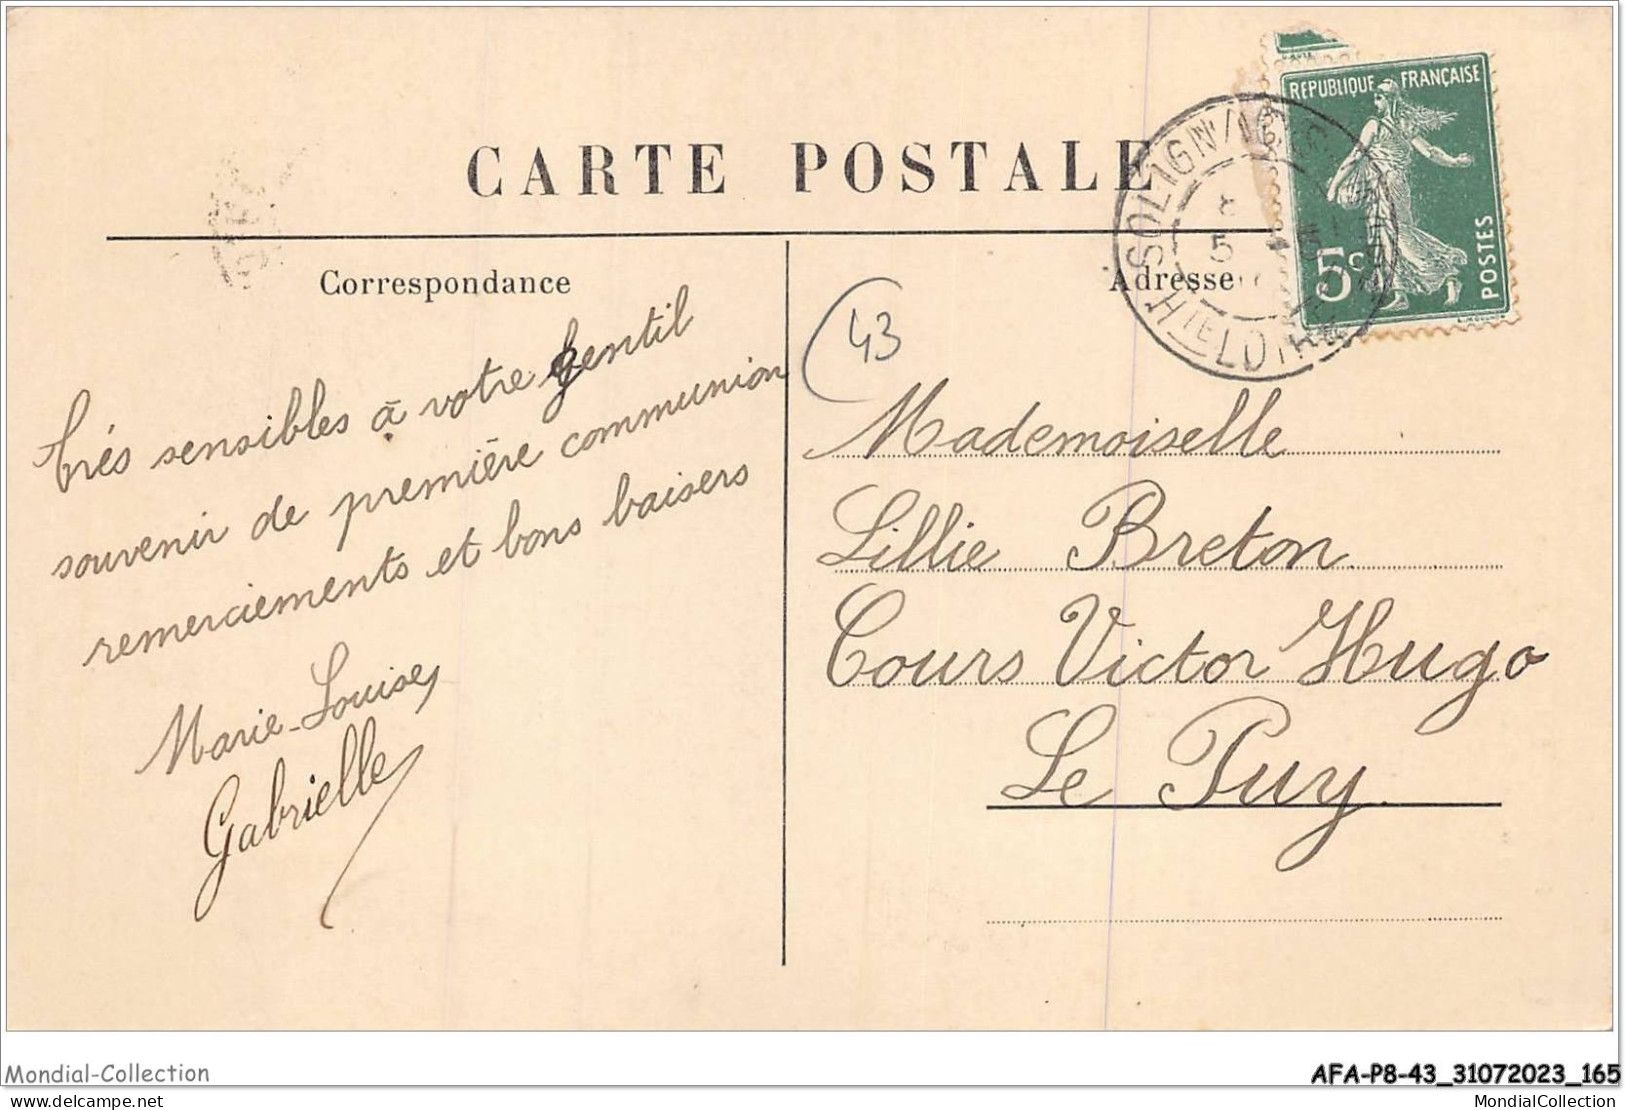 CARTE POSTALE
RÉPUBLIQUE FRANÇAISE
5c
POSTES
SOLIGN
8
5
HTE LOIRE
Correspondance
Adresse
43
trés sensibles à votre gentil
souvenir de première communion
remerciements et bons baisers
Marie-Louise,
Gabrielle
Mademoiselle
Lillie Breton
Cours Victor Hugo
Le Puy
Mondial-Collection
AFA-P8-43_31072023_165
delcampe.net
MondialCollection